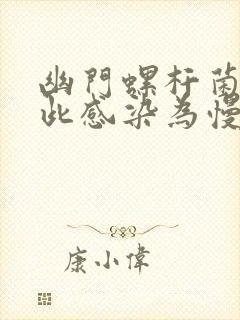 幽門螺杆菌
此感染為慢
康小偉